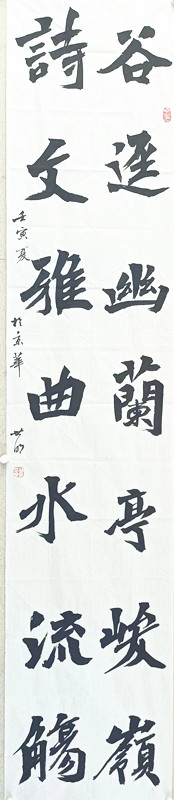 谷遥幽蘭亭峻嶺
詩文雅曲水流觴
壬寅夏 於京華 世明